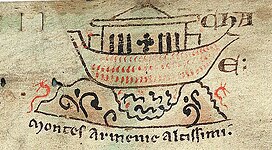 CHA
E:
Montes Armenie Altissimi.